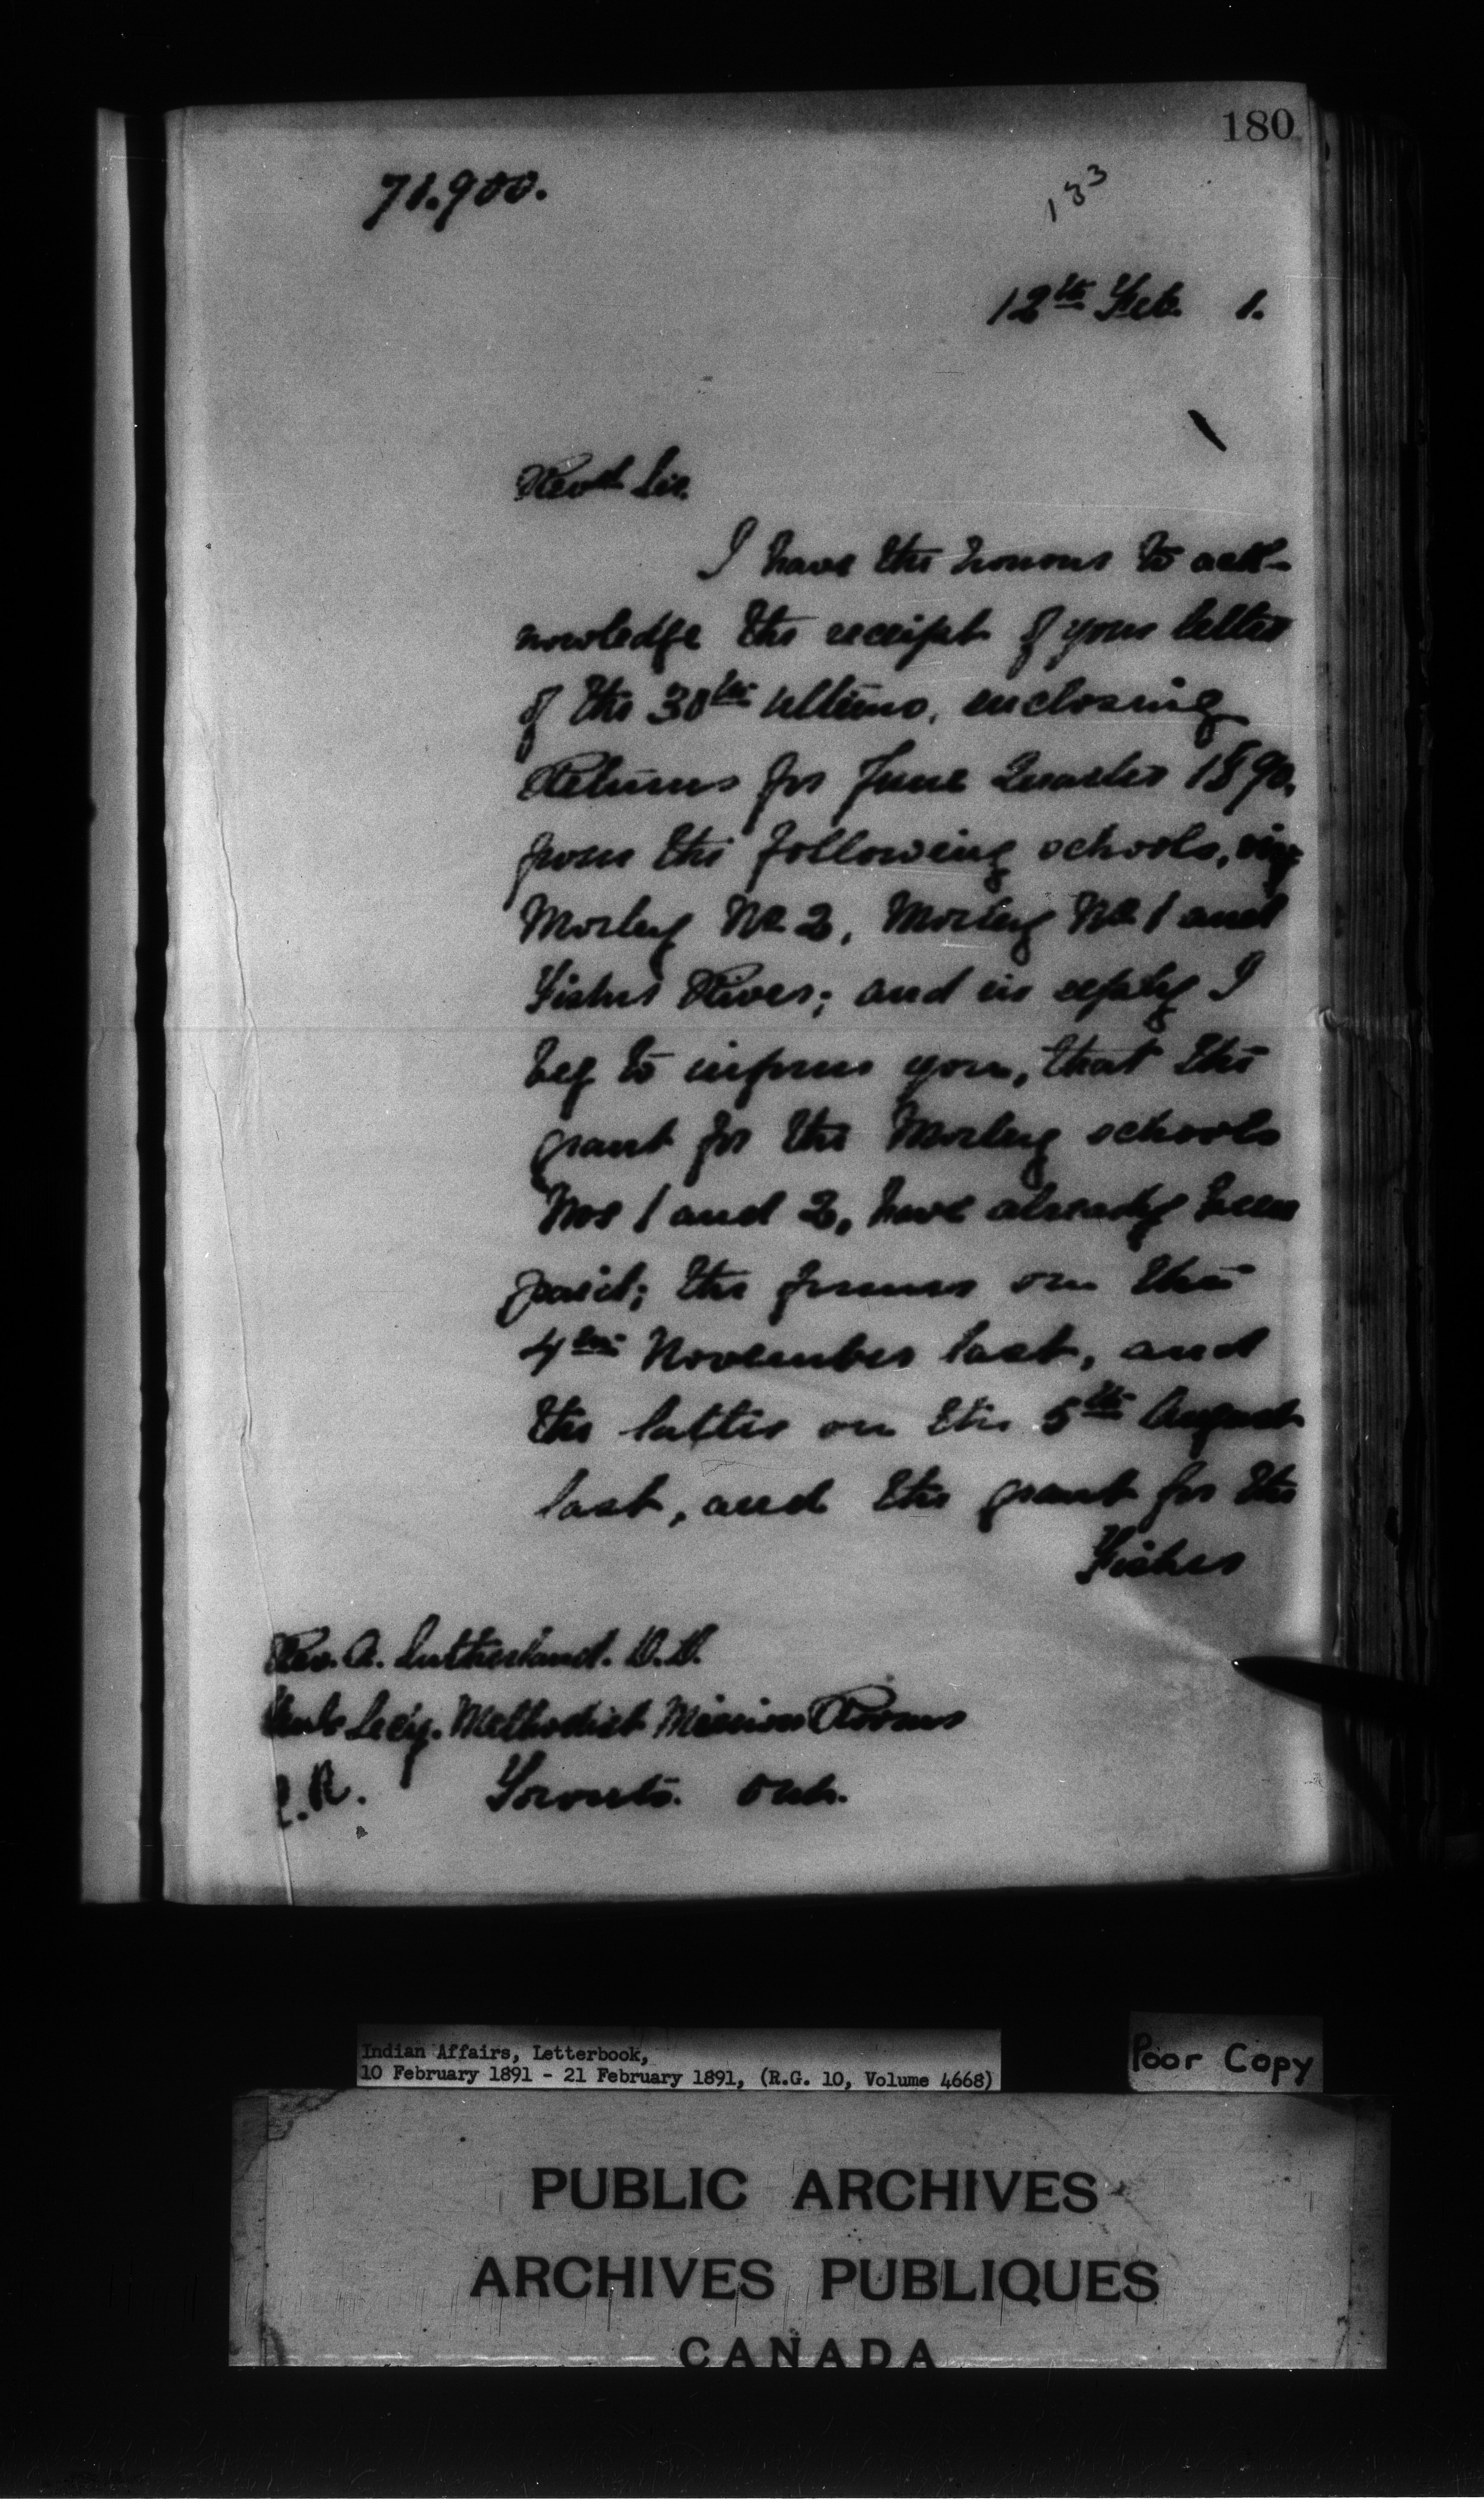 180
71.900.
183
12th Feb. 1.
Revd Sir,
I have the honour to ack-
nowledge the receipt of your letter
of the 30th ultimo, enclosing
Returns for June Quarter 1890,
from the following schools, viz:
Morley No 2, Morley No 1 and
Fisher River; and in reply I
beg to inform you, that the
grant for the Morley schools
Nos 1 and 2, have already been
paid; the former on the
4th November last, and
the latter on the 5th August
last, and the grant for the
Fisher
Rev. A. Sutherland. D.D.
Secy. Methodist Mission Rooms
Toronto. Ont.
Indian Affairs, Letterbook,
10 February 1891 - 21 February 1891, (R.G. 10, Volume 4668)
Poor Copy
PUBLIC ARCHIVES
ARCHIVES PUBLIQUES
CANADA